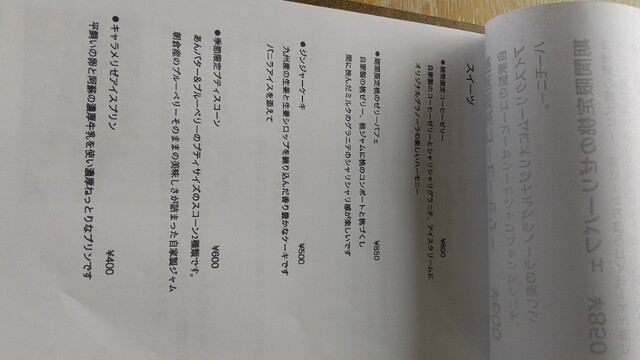 スイーツ
●期間限定コーヒーゼリー ¥600
自家製のコーヒーゼリーとシャリシャリグラニテ、アイスクリームに
オリジナルグラノーラの楽しいハーモニー
●期間限定桃のゼリーパフェ ¥850
自家製の桃ゼリー、桃ジャムに桃のコンポートと桃づくし
間に挟んだミルクのグラニテのシャリシャリ感が楽しいです
●ジンジャーケーキ ¥500
九州産の生姜と生姜シロップを練り込んだ香り豊かなケーキです
バニラアイスを添えて
●季節限定プティスコーン ¥600
あんバター&ブルーベリーのプティサイズのスコーン2種類です。
朝倉産のブルーベリーそのままの美味しさが詰まった自家製ジャム
●キャラメリゼアイスプリン ¥400
平飼いの卵と阿蘇の濃厚牛乳を使い濃厚ねっとりなプリンです
期間限定桃のゼリーパフェ ¥850